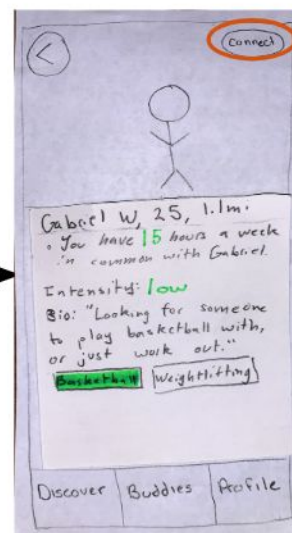 Connect
Gabriel W, 25, 1.1m.
• You have 15 hours a week
in common with Gabriel.
Intensity: low
Bio: "Looking for someone
to play basketball with,
or just work out."
Basketball Weightlifting
Discover Buddies Profile